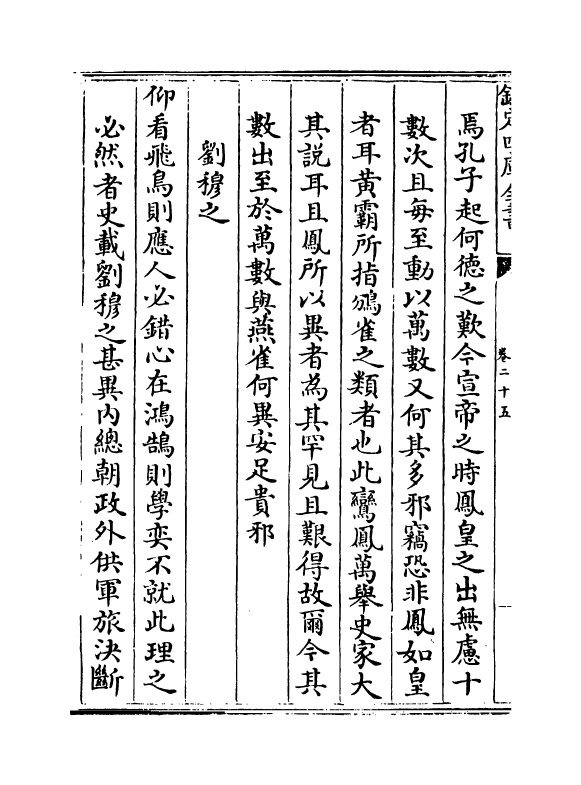 欽定四庫全書
卷二十五
焉孔子起何德之歎今宣帝之時鳳皇之出無慮十
數次且每至動以萬數又何其多邪竊恐非鳳如皇
者耳黃霸所指鶡雀之類者也此鸞鳳萬舉史家大
其說耳且鳳所以異者為其罕見且艱得故爾今其
數出至於萬數與燕雀何異安足貴邪
劉穆之
仰看飛鳥則應人必錯心在鴻鵠則學奕不就此理之
必然者史載劉穆之甚異內總朝政外供軍旅決斷